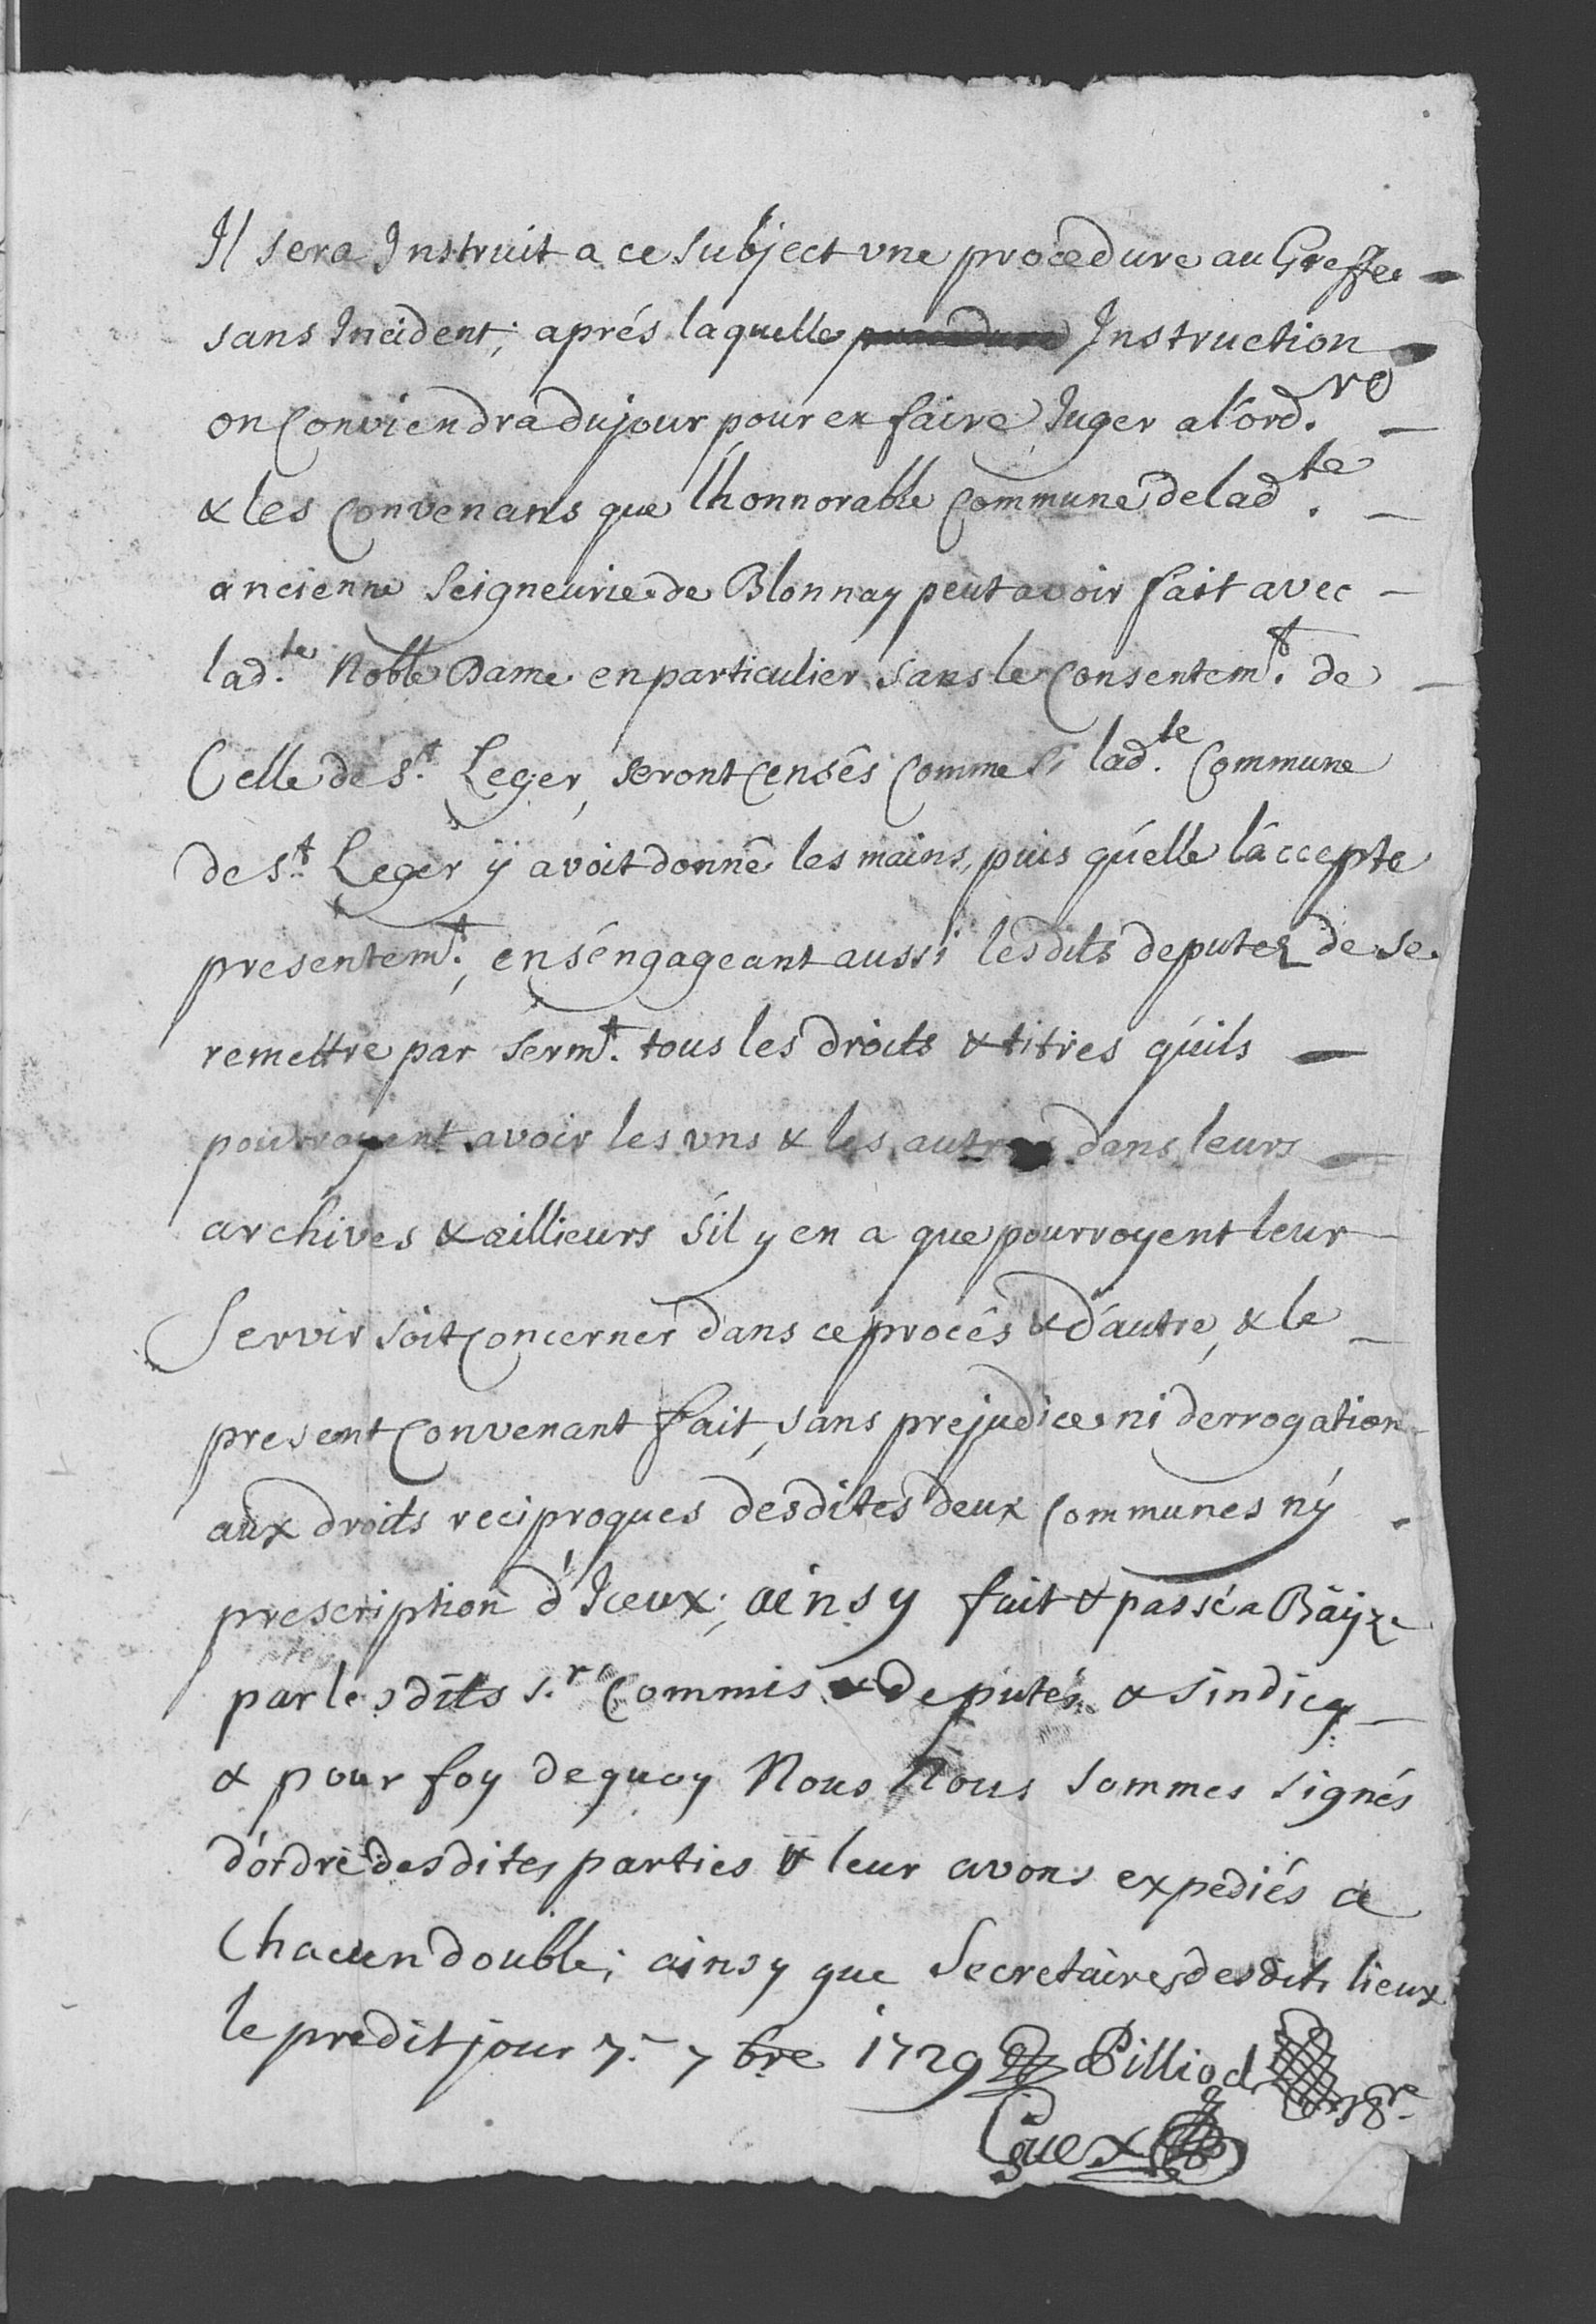 Il sera Instruit a ce subject vne procedure au Greffe —
sans Incident; aprés laquelle procedure Instruction —
on Conviendra du jour pour en faire Juger a l'ord.re —
& les Convenans que lhonnorable Commune de lad.te —
ancienne Seigneurie de Blonnay peut avoir fait avec —
lad.te Noble Dame en particulier sans le Consentem.t de —
Celle de s.t Leger, seront Censés Comme si lad.te Commune
de s.t Leger ÿ avoit donné les mains, puis qu'elle l'accepte
presentem.t, en s'engageant aussi lesdits deputez de se
remettre par serm.t tous les droits & titres qu'ils —
pourroyent avoir les vns & les autres dans leurs —
archives & aillieurs s'il y en a que pourroyent leur —
Servir soit Concerner dans ce procés & d'autre, & le —
present Convenant fait, sans prejudice ni derrogation —
aux droits reciproques desdites deux Communes nÿ
prescription d'Iceux; ainsy fait & passé a Bäÿze
par lesdits s.rs Commis & deputés & sindicq —
& pour foy dequoy Nous Nous sommes signés
d'ordre desdites parties & leur avons expediés a
Chacun double; ainsy que Secretaires desdits lieux
le predit jour 7.e 7bre 1729 Pilliod
Guex